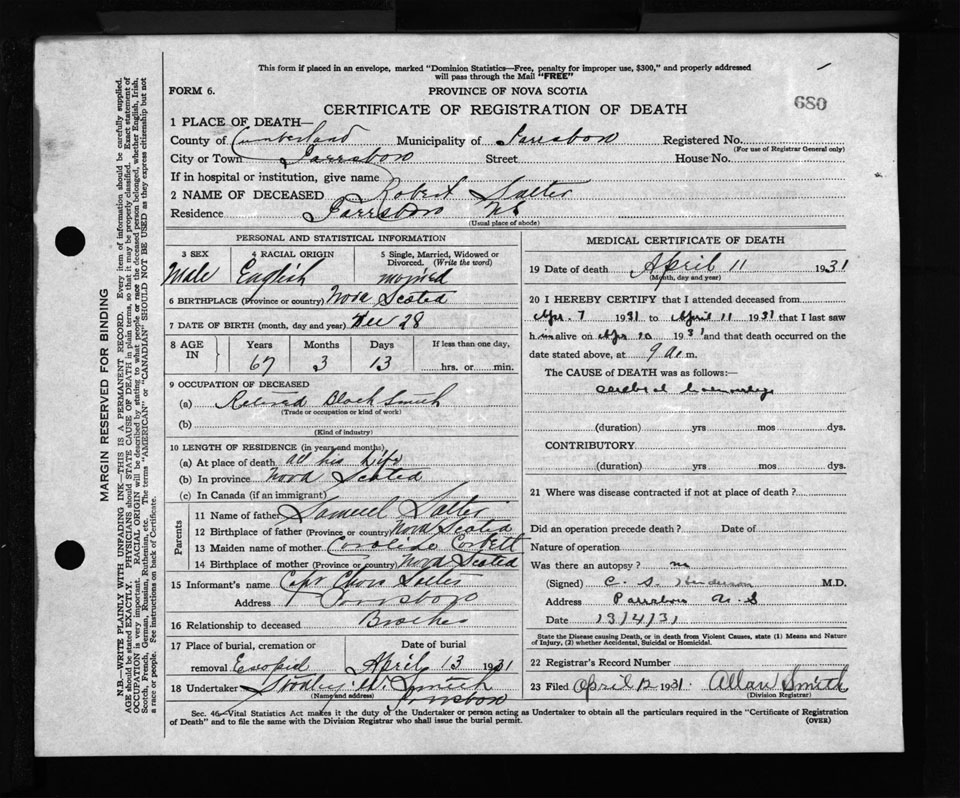 This form if placed in an envelope, marked "Dominion Statistics—Free, penalty for improper use, $300," and properly addressed
will pass through the Mail "FREE"
FORM 6.
PROVINCE OF NOVA SCOTIA
680
CERTIFICATE OF REGISTRATION OF DEATH
1 PLACE OF DEATH—
County of Cumberland Municipality of Parrsboro Registered No.
(For use of Registrar General only)
City or Town Parrsboro Street House No.
If in hospital or institution, give name
2 NAME OF DECEASED Robert Salter
Residence Parrsboro NS
(Usual place of abode)
PERSONAL AND STATISTICAL INFORMATION
3 SEX 4 RACIAL ORIGIN 5 Single, Married, Widowed or Divorced. (Write the word)
Male English
6 BIRTHPLACE (Province or country) Nova Scotia
7 DATE OF BIRTH (month, day and year) Dec 28
8 AGE IN Years Months Days If less than one day,
67 3 13 hrs. or min.
9 OCCUPATION OF DECEASED
(a) Retired Black Smith
(Trade or occupation or kind of work)
(b)
(Kind of industry)
10 LENGTH OF RESIDENCE (in years and months)
(a) At place of death all his life
(b) In province Nova Scotia
(c) In Canada (if an immigrant)
Parents
11 Name of father Samuel Salter
12 Birthplace of father (Province or country) Nova Scotia
13 Maiden name of mother Corbett
14 Birthplace of mother (Province or country) Nova Scotia
15 Informant's name Capt Salter
Address Parrsboro
16 Relationship to deceased Brother
17 Place of burial, cremation or removal Date of burial
April 13 1931
18 Undertaker Smith
(Name and address) Parrsboro
MEDICAL CERTIFICATE OF DEATH
19 Date of death April 11 1931
(Month, day and year)
20 I HEREBY CERTIFY that I attended deceased from
Apr. 7 1931 to April 11 1931 that I last saw
him alive on Apr 10 1931 and that death occurred on the
date stated above, at 9 a.m.
The CAUSE of DEATH was as follows:—
cerebral haemorrhage
(duration) yrs mos dys.
CONTRIBUTORY
(duration) yrs mos dys.
21 Where was disease contracted if not at place of death?
Did an operation precede death? Date of
Nature of operation
Was there an autopsy? no
(Signed) C. S. Henderson M.D.
Address Parrsboro N.S
Date 13/4/31
State the Disease causing Death, or in death from Violent Causes, state (1) Means and Nature
of Injury, (2) whether Accidental, Suicidal or Homicidal.
22 Registrar's Record Number
23 Filed April 12 1931 Allan Smith
(Division Registrar)
Sec. 46—Vital Statistics Act makes it the duty of the Undertaker or person acting as Undertaker to obtain all the particulars required in the "Certificate of Registration
of Death" and to file the same with the Division Registrar who shall issue the burial permit.
(OVER)
MARGIN RESERVED FOR BINDING
N.B.—WRITE PLAINLY WITH UNFADING INK—THIS IS A PERMANENT RECORD. Every item of information should be carefully supplied.
AGE should be stated EXACTLY. PHYSICIANS should STATE CAUSE OF DEATH in plain terms, so that it may be properly classified. Exact statement of
OCCUPATION is very important. RACIAL ORIGIN will be described by stating to what people or race the deceased person belonged, whether English, Irish,
Scotch, French, German, Russian, Ruthenian, etc. The terms "AMERICAN" or "CANADIAN" SHOULD NOT BE USED as they express citizenship but not
a race or people. See instructions on back of Certificate.